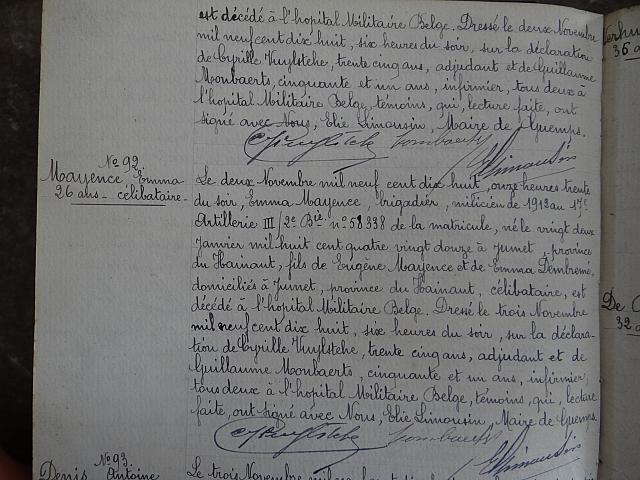 est décédé à l'hopital Militaire Belge. Dressé le deux Novembre
mil neuf cent dix huit, six heures du soir, sur la déclaration
de Cyrille Vuylsteke, trente cinq ans, adjudant et de Guillaume
Monbaerts, cinquante et un ans, infirmier, tous deux à
l'hopital Militaire Belge, témoins, qui, lecture faite, ont
signé avec Nous, Elie Limousin, Maire de Guemps.
CVuylsteke Monbaerts
ELimousin
N° 92
Mayence Emma
26 ans - célibataire -
Le deux Novembre mil neuf cent dix huit, onze heures trente
du soir, Emma Mayence, brigadier, milicien de 1912 au 17e
Artillerie III/2e Bie n° 58338 de la matricule, né le vingt deux
Janvier mil huit cent quatre vingt douze à Jumet, province
du Hainaut, fils de Eugène Mayence et de Emma Dembreme,
domiciliés à Jumet, province du Hainaut, célibataire, est
décédé à l'hopital Militaire Belge. Dressé le trois Novembre
mil neuf cent dix huit, six heures du soir, sur la déclara-
tion de Cyrille Vuylsteke, trente cinq ans, adjudant et de
Guillaume Monbaerts, cinquante et un ans, infirmier,
tous deux à l'hopital Militaire Belge, témoins, qui, lecture
faite, ont signé avec Nous, Elie Limousin, Maire de Guemps.
CVuylsteke Monbaerts
ELimousin
N° 93
Denis Antoine
Le trois Novembre mil
36 a
De
32 a